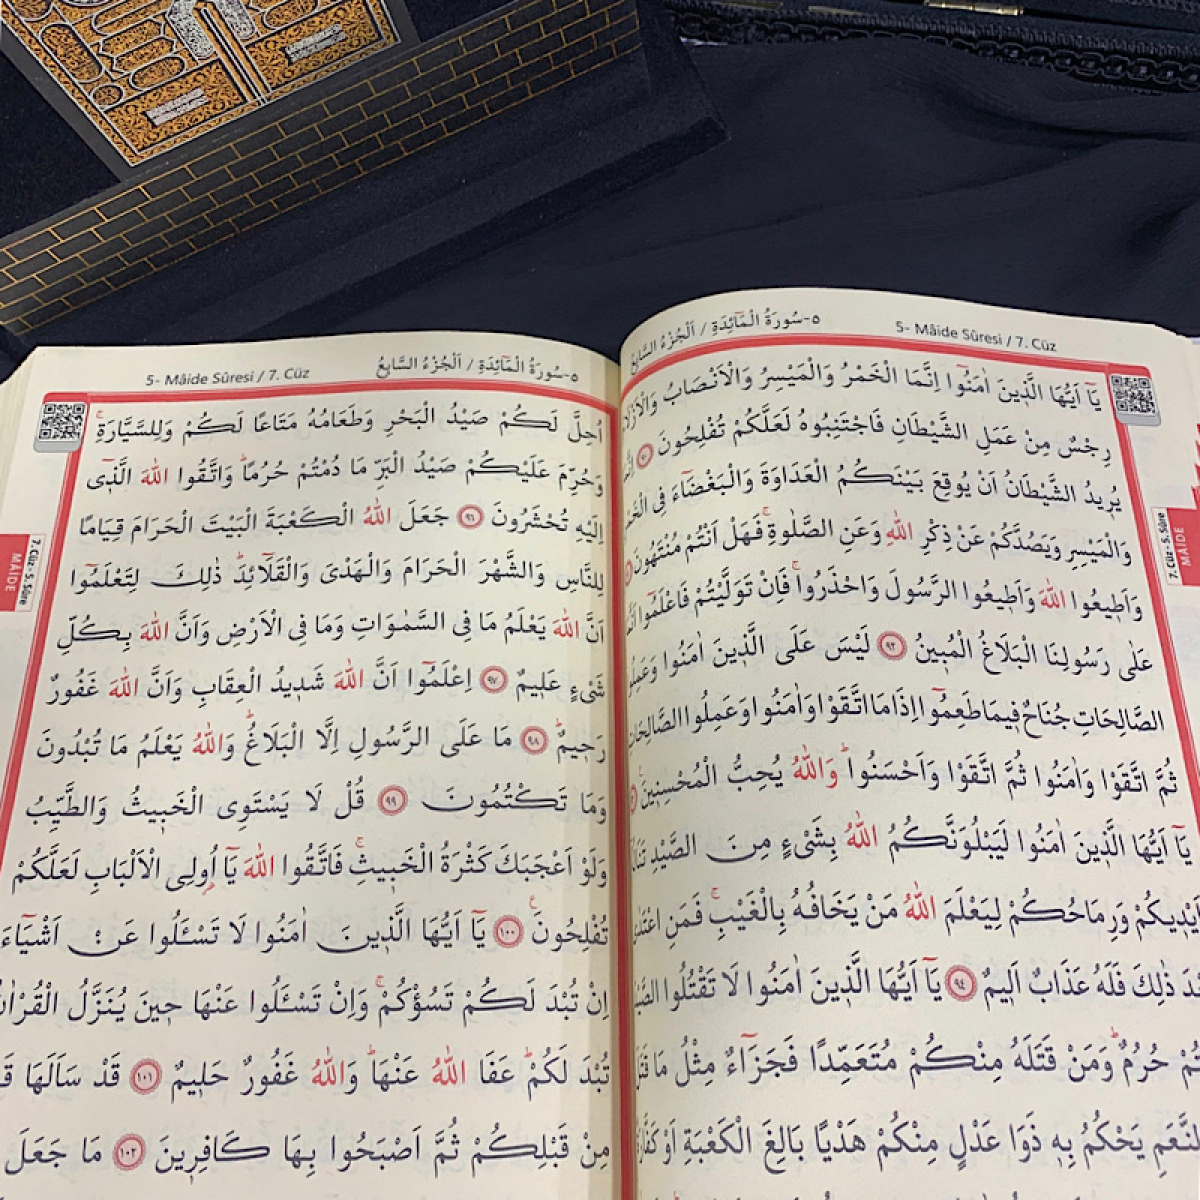 ٥-سُورَةُ الْمَٓائِدَةِ / اَلْجُزْءُ السَّابِعُ
5- Mâide Sûresi / 7. Cüz
يَٓا اَيُّهَا الَّذ۪ينَ اٰمَنُٓوا اِنَّمَا الْخَمْرُ وَالْمَيْسِرُ وَالْاَنْصَابُ
رِجْسٌ مِنْ عَمَلِ الشَّيْطَانِ فَاجْتَنِبُوهُ لَعَلَّكُمْ تُفْلِحُونَ ﴿٩٠﴾
يُر۪يدُ الشَّيْطَانُ اَنْ يُوقِعَ بَيْنَكُمُ الْعَدَاوَةَ وَالْبَغْضَٓاءَ فِي
وَالْمَيْسِرِ وَيَصُدَّكُمْ عَنْ ذِكْرِ اللّٰهِ وَعَنِ الصَّلٰوةِۚ فَهَلْ اَنْتُمْ مُنْتَهُونَ
وَاَط۪يعُوا اللّٰهَ وَاَط۪يعُوا الرَّسُولَ وَاحْذَرُواۚ فَاِنْ تَوَلَّيْتُمْ فَاعْلَمُٓوا
عَلٰى رَسُولِنَا الْبَلَاغُ الْمُب۪ينُ ﴿٩٢﴾ لَيْسَ عَلَى الَّذ۪ينَ اٰمَنُوا
الصَّالِحَاتِ جُنَاحٌ ف۪يمَا طَعِمُٓوا اِذَا مَا اتَّقَوْا وَاٰمَنُوا وَعَمِلُوا الصَّالِحَاتِ
ثُمَّ اتَّقَوْا وَاٰمَنُوا ثُمَّ اتَّقَوْا وَاَحْسَنُواۜ وَاللّٰهُ يُحِبُّ الْمُحْسِن۪ينَ
يَٓا اَيُّهَا الَّذ۪ينَ اٰمَنُوا لَيَبْلُوَنَّكُمُ اللّٰهُ بِشَيْءٍ مِنَ الصَّيْدِ
اَيْد۪يكُمْ وَرِمَاحُكُمْ لِيَعْلَمَ اللّٰهُ مَنْ يَخَافُهُ بِالْغَيْبِۚ فَمَنِ
ذٰلِكَ فَلَهُ عَذَابٌ اَل۪يمٌ ﴿٩٤﴾ يَٓا اَيُّهَا الَّذ۪ينَ اٰمَنُوا لَا تَقْتُلُوا
حُرُمٌۜ وَمَنْ قَتَلَهُ مِنْكُمْ مُتَعَمِّدًا فَجَزَٓاءٌ مِثْلُ مَا
يَحْكُمُ بِه۪ ذَوَا عَدْلٍ مِنْكُمْ هَدْيًا بَالِغَ الْكَعْبَةِ اَوْ
7. Cüz - 5. Sûre
MÂİDE
٥-سُورَةُ الْمَٓائِدَةِ / اَلْجُزْءُ السَّابِعُ
5- Mâide Sûresi / 7. Cüz
اُحِلَّ لَكُمْ صَيْدُ الْبَحْرِ وَطَعَامُهُ مَتَاعًا لَكُمْ وَلِلسَّيَّارَةِۚ
وَحُرِّمَ عَلَيْكُمْ صَيْدُ الْبَرِّ مَا دُمْتُمْ حُرُمًاۜ وَاتَّقُوا اللّٰهَ الَّذ۪ٓي
اِلَيْهِ تُحْشَرُونَ ﴿٩٦﴾ جَعَلَ اللّٰهُ الْكَعْبَةَ الْبَيْتَ الْحَرَامَ قِيَامًا
لِلنَّاسِ وَالشَّهْرَ الْحَرَامَ وَالْهَدْيَ وَالْقَلَٓائِدَۜ ذٰلِكَ لِتَعْلَمُٓوا
اَنَّ اللّٰهَ يَعْلَمُ مَا فِي السَّمٰوَاتِ وَمَا فِي الْاَرْضِ وَاَنَّ اللّٰهَ بِكُلِّ
شَيْءٍ عَل۪يمٌ ﴿٩٧﴾ اِعْلَمُٓوا اَنَّ اللّٰهَ شَد۪يدُ الْعِقَابِ وَاَنَّ اللّٰهَ غَفُورٌ
رَح۪يمٌۜ ﴿٩٨﴾ مَا عَلَى الرَّسُولِ اِلَّا الْبَلَاغُۜ وَاللّٰهُ يَعْلَمُ مَا تُبْدُونَ
وَمَا تَكْتُمُونَ ﴿٩٩﴾ قُلْ لَا يَسْتَوِي الْخَب۪يثُ وَالطَّيِّبُ
وَلَوْ اَعْجَبَكَ كَثْرَةُ الْخَب۪يثِۚ فَاتَّقُوا اللّٰهَ يَٓا اُو۬لِي الْاَلْبَابِ لَعَلَّكُمْ
تُفْلِحُونَ۟ ﴿١٠٠﴾ يَٓا اَيُّهَا الَّذ۪ينَ اٰمَنُوا لَا تَسْـَٔلُوا عَنْ اَشْيَٓاءَ
اِنْ تُبْدَ لَكُمْ تَسُؤْكُمْۚ وَاِنْ تَسْـَٔلُوا عَنْهَا ح۪ينَ يُنَزَّلُ الْقُرْاٰنُ
تُبْدَ لَكُمْۜ عَفَا اللّٰهُ عَنْهَاۜ وَاللّٰهُ غَفُورٌ حَل۪يمٌ ﴿١٠١﴾ قَدْ سَاَلَهَا
مِنْ قَبْلِكُمْ ثُمَّ اَصْبَحُوا بِهَا كَافِر۪ينَ ﴿١٠٢﴾ مَا جَعَلَ
7. Cüz - 5. Sûre
MÂİDE